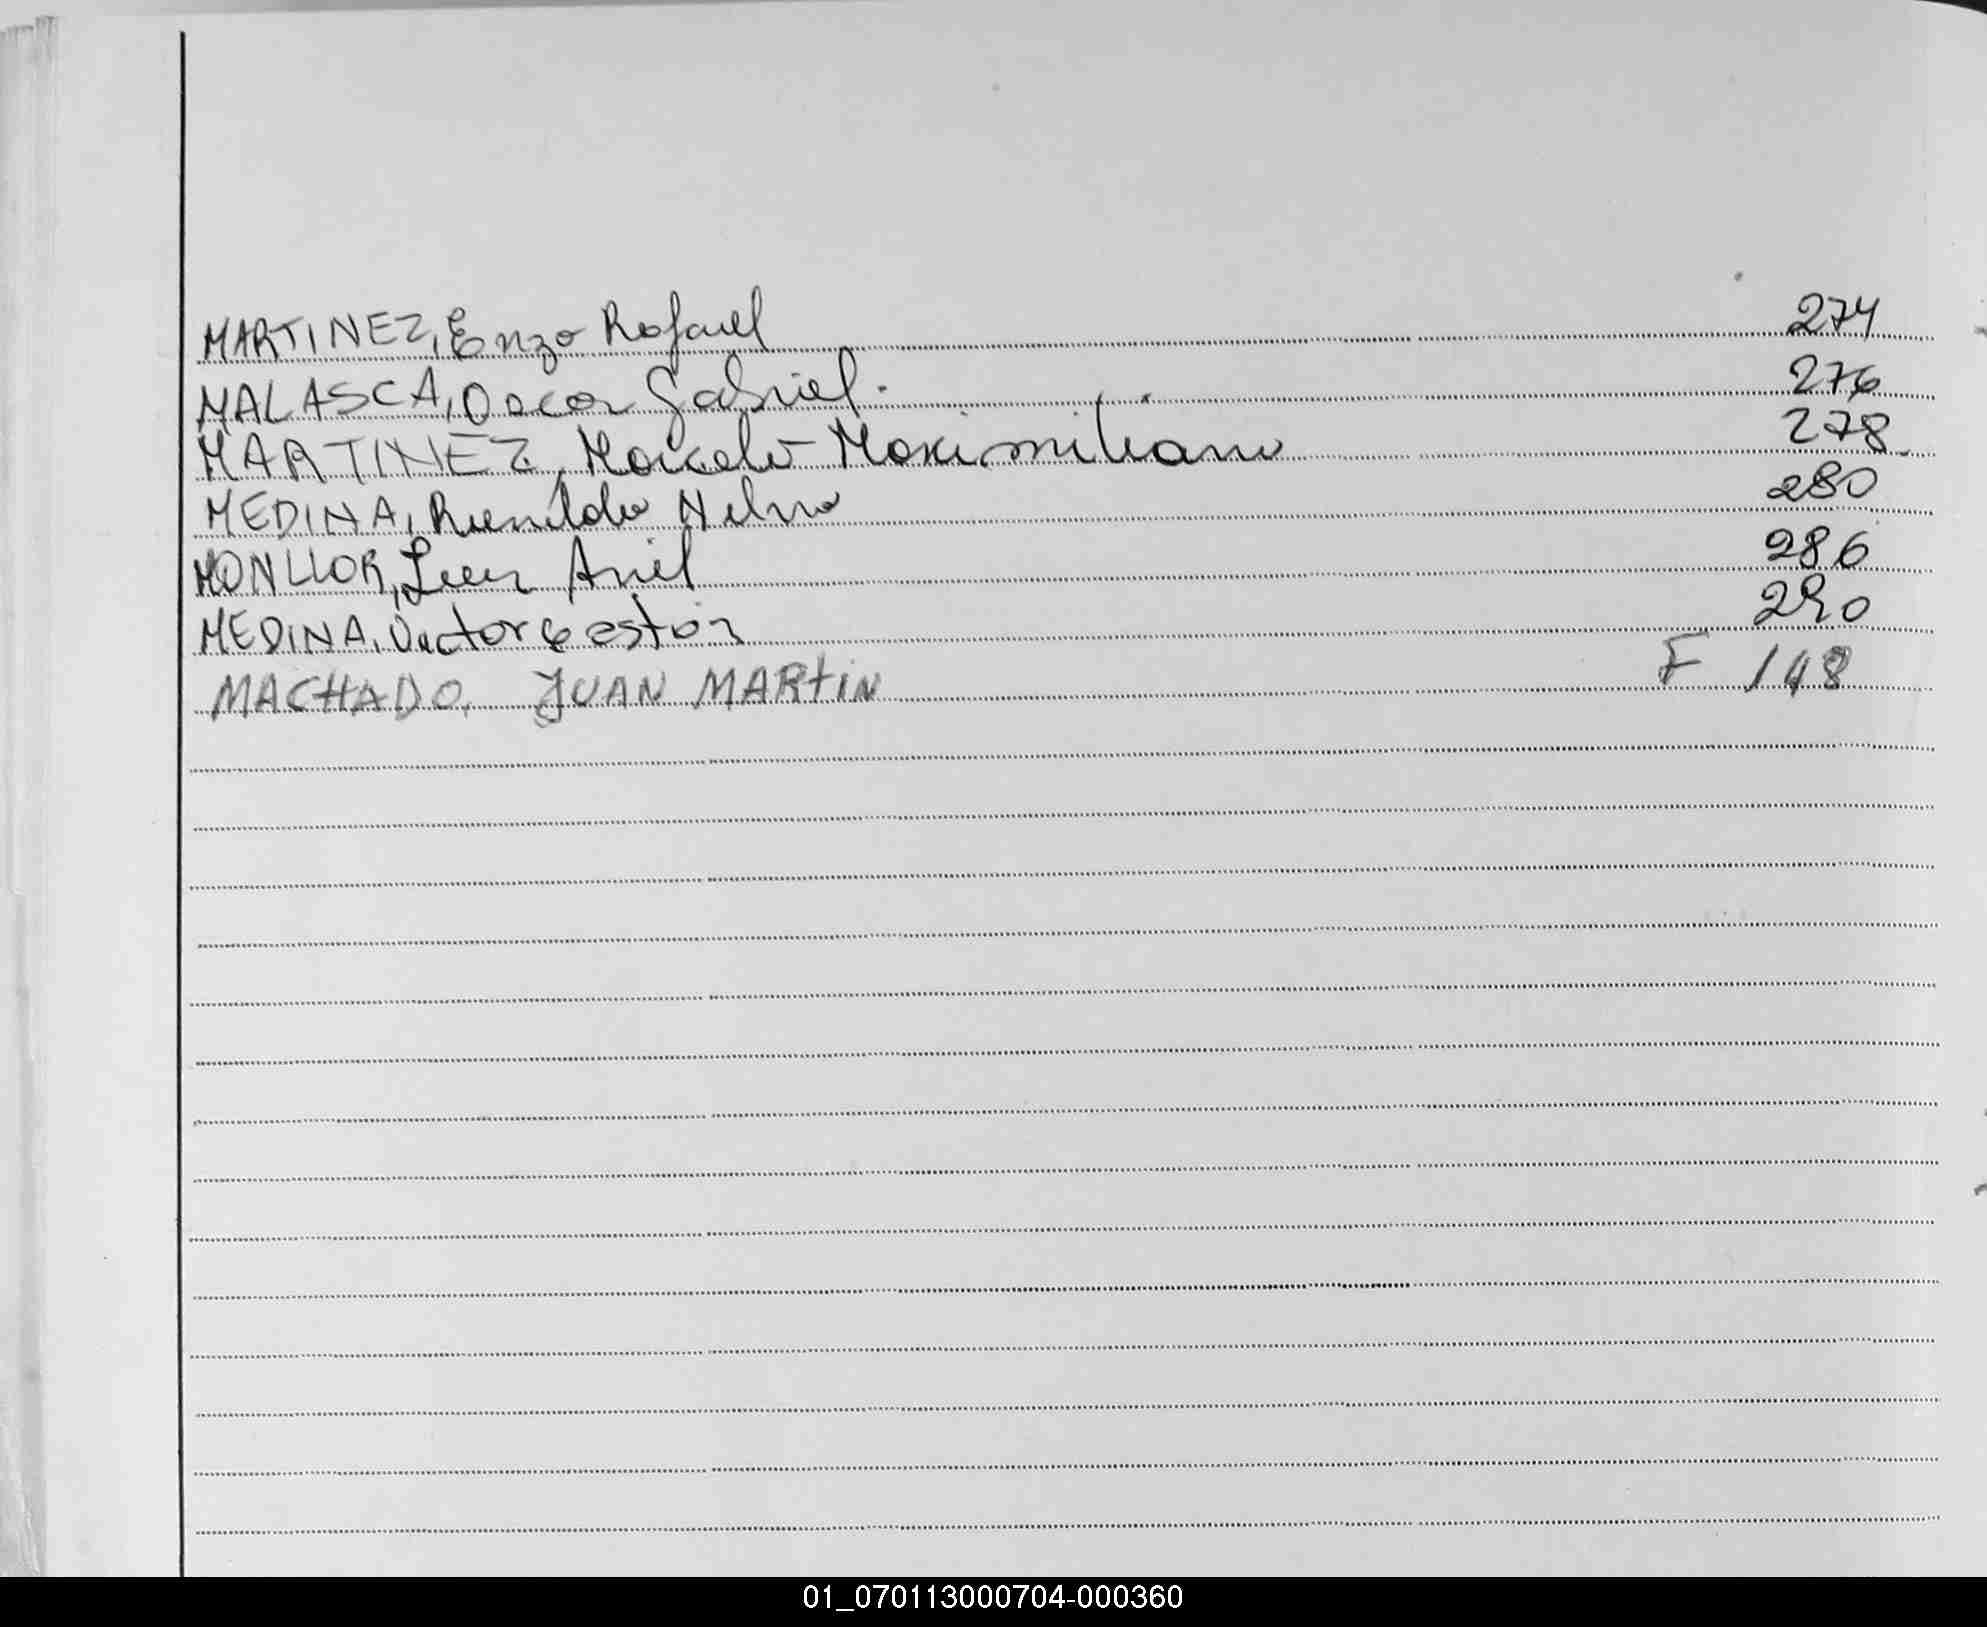 MARTINEZ, Enzo Rafael 274
MALASCA, Oscar Gabriel. 276
MARTINEZ, Marcelo Maximiliano 278
MEDINA, Nelso 280
MONLLOR, Ariel 286
MEDINA, Victor Gastón 290
MACHADO, JUAN MARTIN F 148
01_070113000704-000360